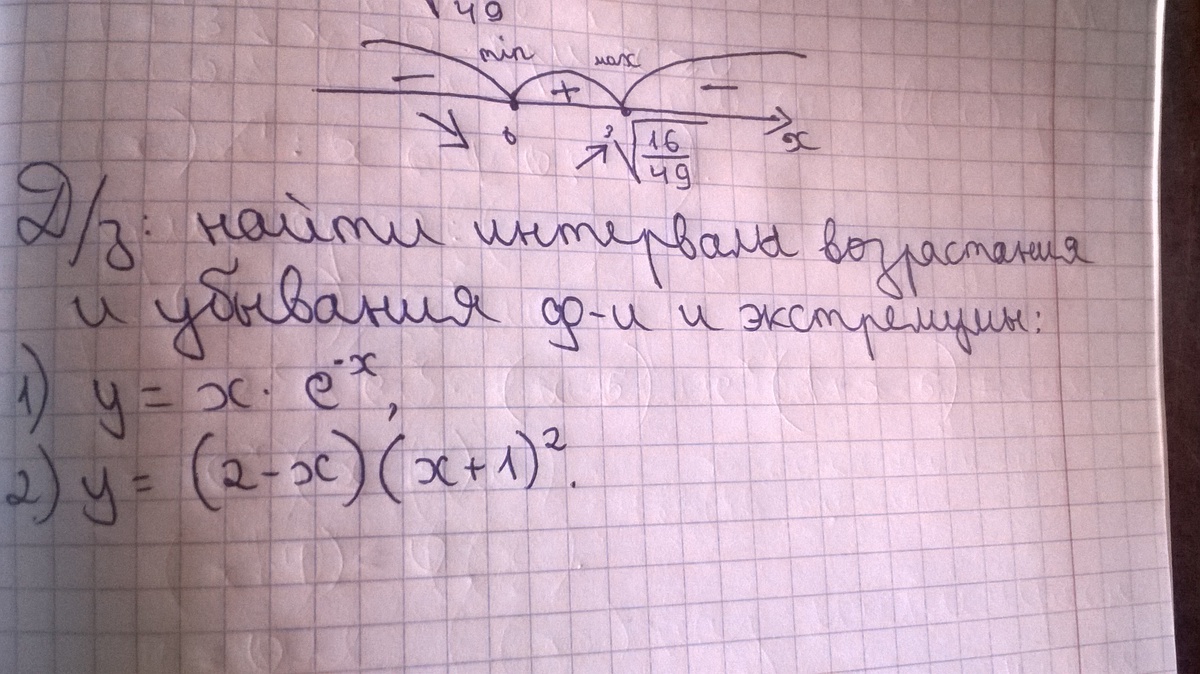 √49
min max
− + −
0 ∛(16/49) x
Д/з: найти интервалы возрастания
и убывания ф-и и экстремумы:
1) y = x · e^-x,
2) y = (2-x)(x+1)^2.